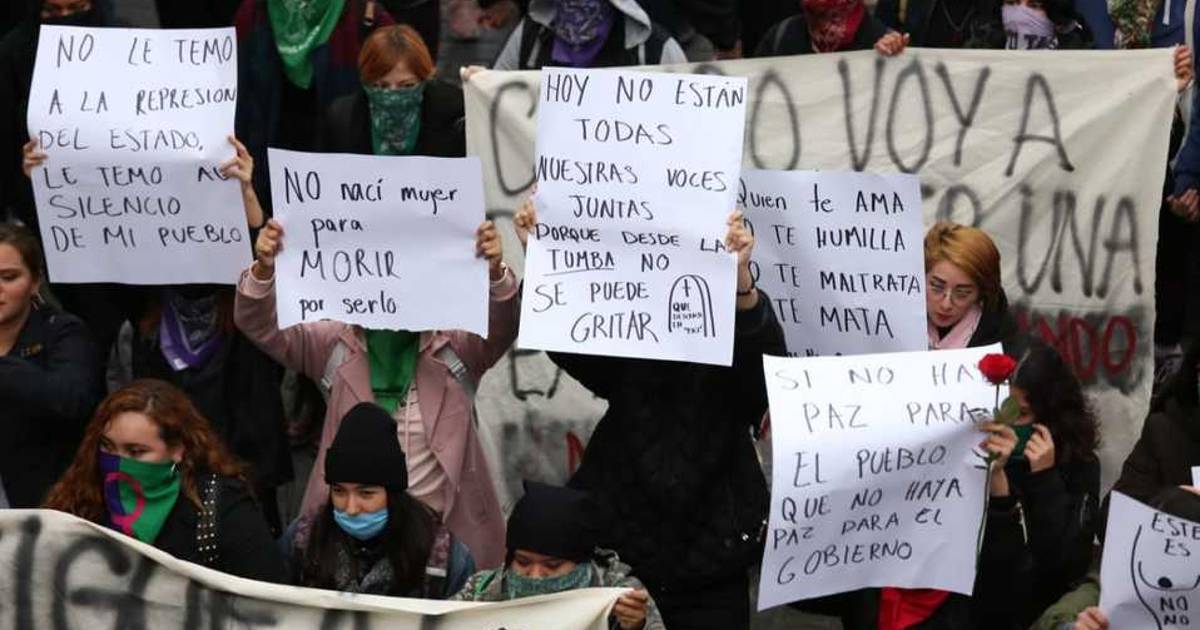 NO LE TEMO
A LA REPRESION
DEL ESTADO,
LE TEMO AL
SILENCIO
DE MI PUEBLO
NO nací mujer
para
MORIR
por serlo
HOY NO ESTÁN
TODAS
NUESTRAS VOCES
JUNTAS
PORQUE DESDE LA
TUMBA NO
SE PUEDE
GRITAR
QUE
Quien te AMA
NO TE HUMILLA
NO TE MALTRATA
TE MATA
VOY A
UNA
SI NO HAY
PAZ PARA
EL PUEBLO
QUE NO HAYA
PAZ PARA EL
GOBIERNO
ESTE
ES
NO
NO